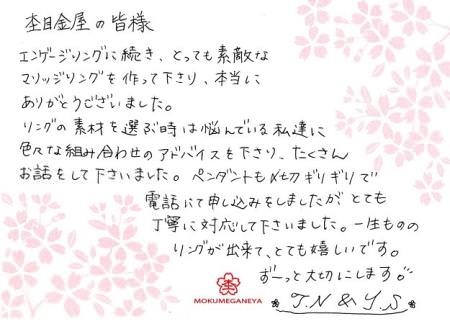 杢目金屋の皆様
エンゲージリングに続き、とっても素敵な
マリッジリングを作って下さり、本当に
ありがとうございました。
リングの素材を選ぶ時は悩んでいる私達に
色々な組み合わせのアドバイスを下さり、たくさん
お話をして下さいました。ペンダントも〆切ギリギリで
電話にて申し込みをしましたがとても
丁寧に対応して下さいました。一生ものの
リングが出来て、とても嬉しいです。
ずーっと大切にします
T.N & Y.S
MOKUMEGANEYA